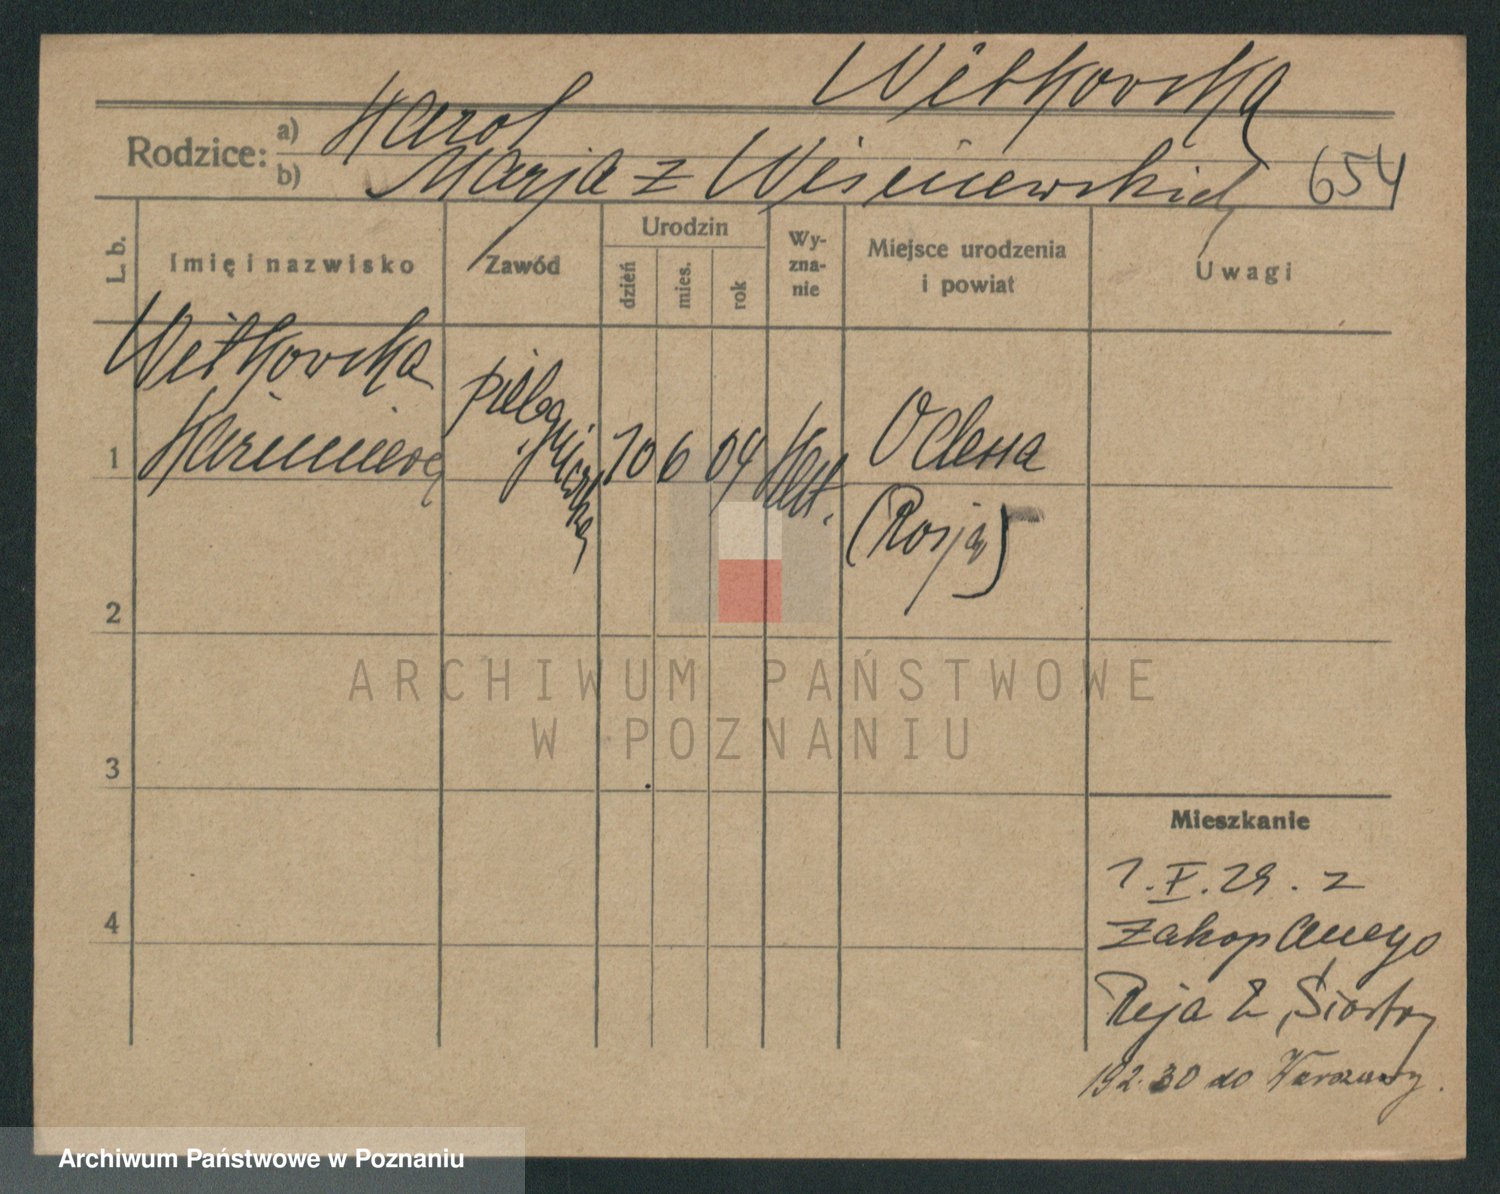 Witkowska
Rodzice: a) Karol
b) Marja z Wiśniewskich 654
L. b.
Imię i nazwisko
Zawód
Urodzin
dzień
mies.
rok
Wy-
zna-
nie
Miejsce urodzenia
i powiat
Uwagi
Witkowska
pielęg
1 Kazimiera 10 6 04 Odessa
niarka
(Rosja)
2
ARCHIWUM PAŃSTWOWE
W POZNANIU
3
Mieszkanie
1.V.29. z
4 Zakopanego
Reja 2, Siostry
19 2.30 do Warszawy.
Archiwum Państwowe w Poznaniu